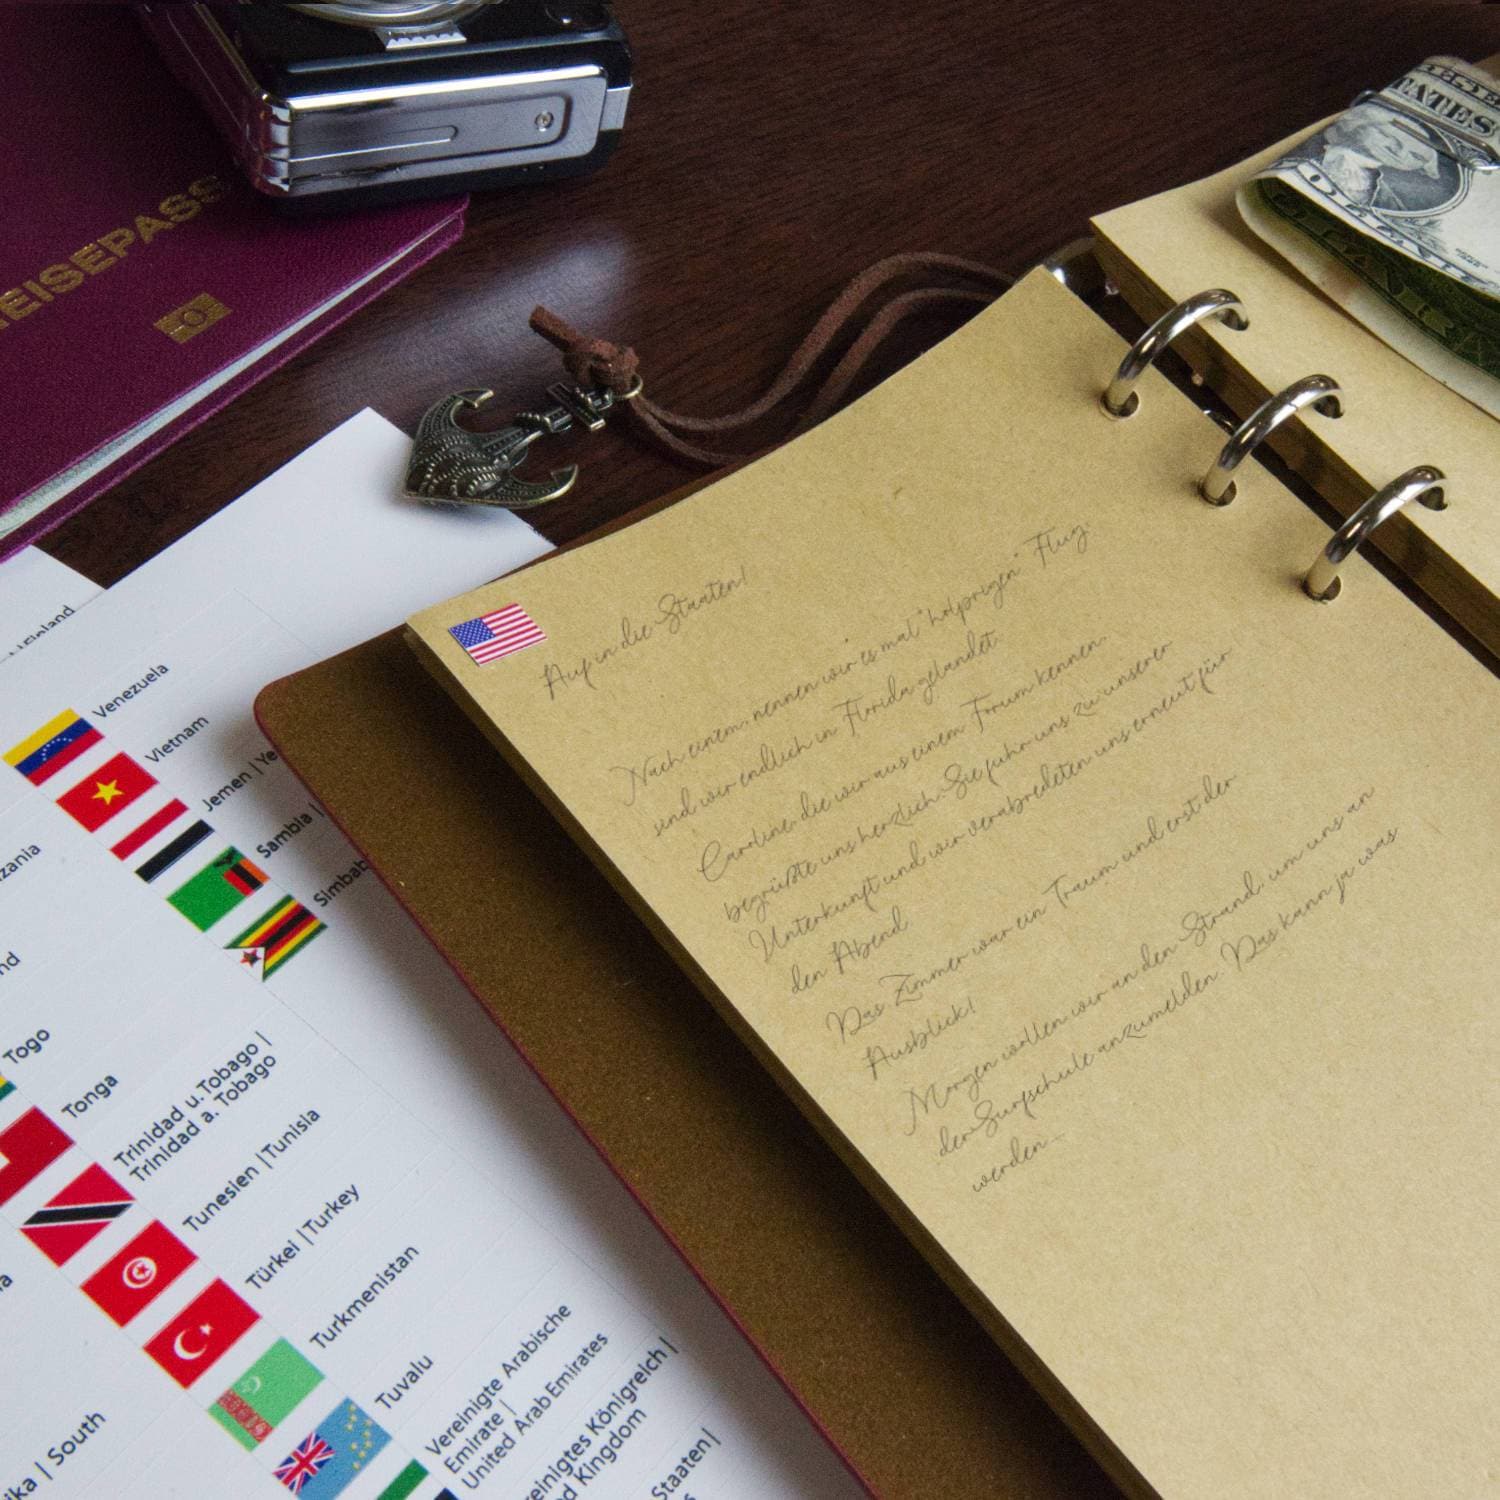 EISEPASS
TATES
Auf in die Staaten!
Nach einem, nennen wir es mal "holprigen" Flug,
sind wir endlich in Florida gelandet.
Caroline, die wir aus einem Forum kennen,
begrüßte uns herzlich. Sie fuhr uns zu unserer
Unterkunft und wir verabredeten uns erneut für
den Abend.
Das Zimmer war ein Traum und erst der
Ausblick!
Morgen wollen wir an den Strand, um uns an
der Surfschule anzumelden. Das kann ja was
werden...
Venezuela
Vietnam
Jemen | Ye
Sambia |
Simbab
zania
nd
Togo
Tonga
Trinidad u. Tobago |
Trinidad a. Tobago
Tunesien | Tunisia
Türkei | Turkey
Turkmenistan
Tuvalu
Vereinigte Arabische
Emirate |
United Arab Emirates
einigtes Königreich |
d Kingdom
Staaten |
ika | South